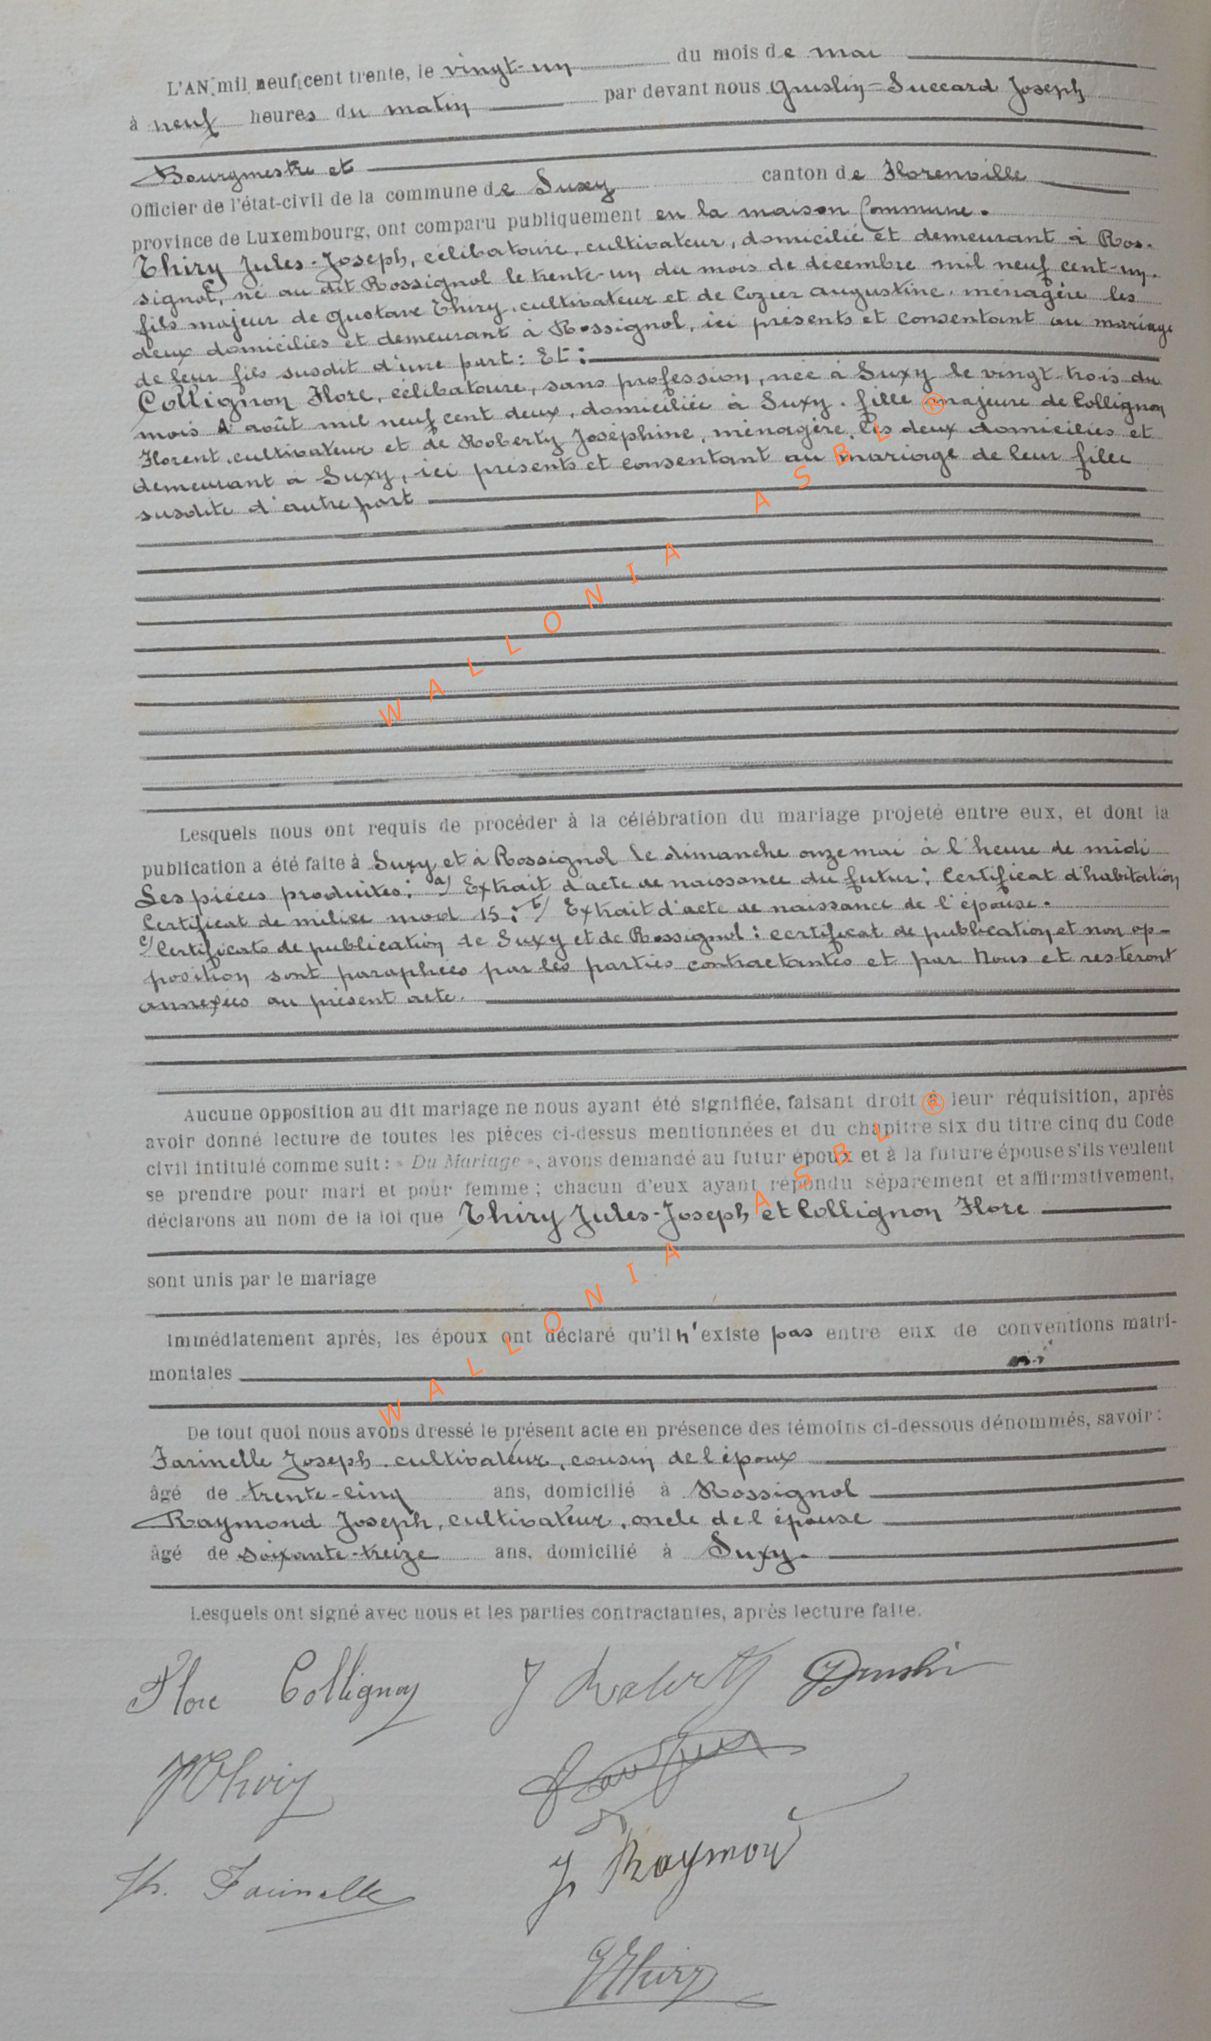 L'AN mil neuf cent trente, le vingt-un du mois de mai
à neuf heures du matin par devant nous Gruslin-Succard Joseph
Bourgmestre et
Officier de l'état-civil de la commune de Suxy canton de Florenville
province de Luxembourg, ont comparu publiquement en la maison Commune.
Thiry Jules-Joseph, célibataire, cultivateur, domicilié et demeurant à Ros-
signol, né au dit Rossignol le trente-un du mois de décembre mil neuf cent-un.
fils majeur de Gustave Thiry, cultivateur et de Cozier Augustine, ménagère les
deux domiciliés et demeurant à Rossignol, ici présents et consentant au mariage
de leur fils susdit d'une part : Et :
Collignon Flore, célibataire, sans profession, née à Suxy le vingt-trois du
mois d'août mil neuf cent deux, domiciliée à Suxy, fille majeure de Collignon
Florent, cultivateur et de Roberty Joséphine, ménagère, les deux domiciliés et
demeurant à Suxy, ici présents et consentant au mariage de leur fille
susdite d'autre part
Lesquels nous ont requis de procéder à la célébration du mariage projeté entre eux, et dont la
publication a été faite à Suxy et à Rossignol le dimanche onze mai à l'heure de midi
Les pièces produites : a/ Extrait d'acte de naissance du futur ; Certificat d'habitation
Certificat de milice mod 15 ; b/ Extrait d'acte de naissance de l'épouse.
c/ Certificats de publication de Suxy et de Rossignol : certificat de publication et non op-
position sont paraphées par les parties contractantes et par Nous et resteront
annexées au présent acte.
Aucune opposition au dit mariage ne nous ayant été signifiée, faisant droit à leur réquisition, après
avoir donné lecture de toutes les pièces ci-dessus mentionnées et du chapitre six du titre cinq du Code
civil intitulé comme suit : « Du Mariage », avons demandé au futur époux et à la future épouse s'ils veulent
se prendre pour mari et pour femme ; chacun d'eux ayant répondu séparement et affirmativement,
déclarons au nom de la loi que Thiry Jules-Joseph et Collignon Flore
sont unis par le mariage
Immédiatement après, les époux ont déclaré qu'il n'existe pas entre eux de conventions matri-
moniales
De tout quoi nous avons dressé le présent acte en présence des témoins ci-dessous dénommés, savoir :
Farinelle Joseph, cultivateur, cousin de l'époux
âgé de trente-cinq ans, domicilié à Rossignol
Raymond Joseph, cultivateur, oncle de l'épouse
âgé de soixante-treize ans, domicilié à Suxy.
Lesquels ont signé avec nous et les parties contractantes, après lecture faite.
Flore Collignon J Roberty Gruslin
J Thiry
J Raymond
Jh. Farinelle
G Thiry
WALLONIA ASBL ®
WALLONIA ASBL ®